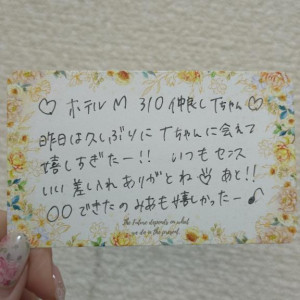 ♡ ホテルM 310 仲良しTちゃん♡
昨日は久しぶりに Tちゃんに会えて
嬉しすぎたー!! いつもセンス
いい差し入れありがとね♡ あと!!
〇〇できたのみあも嬉しかったー♪
the future depends on what
we do in the present